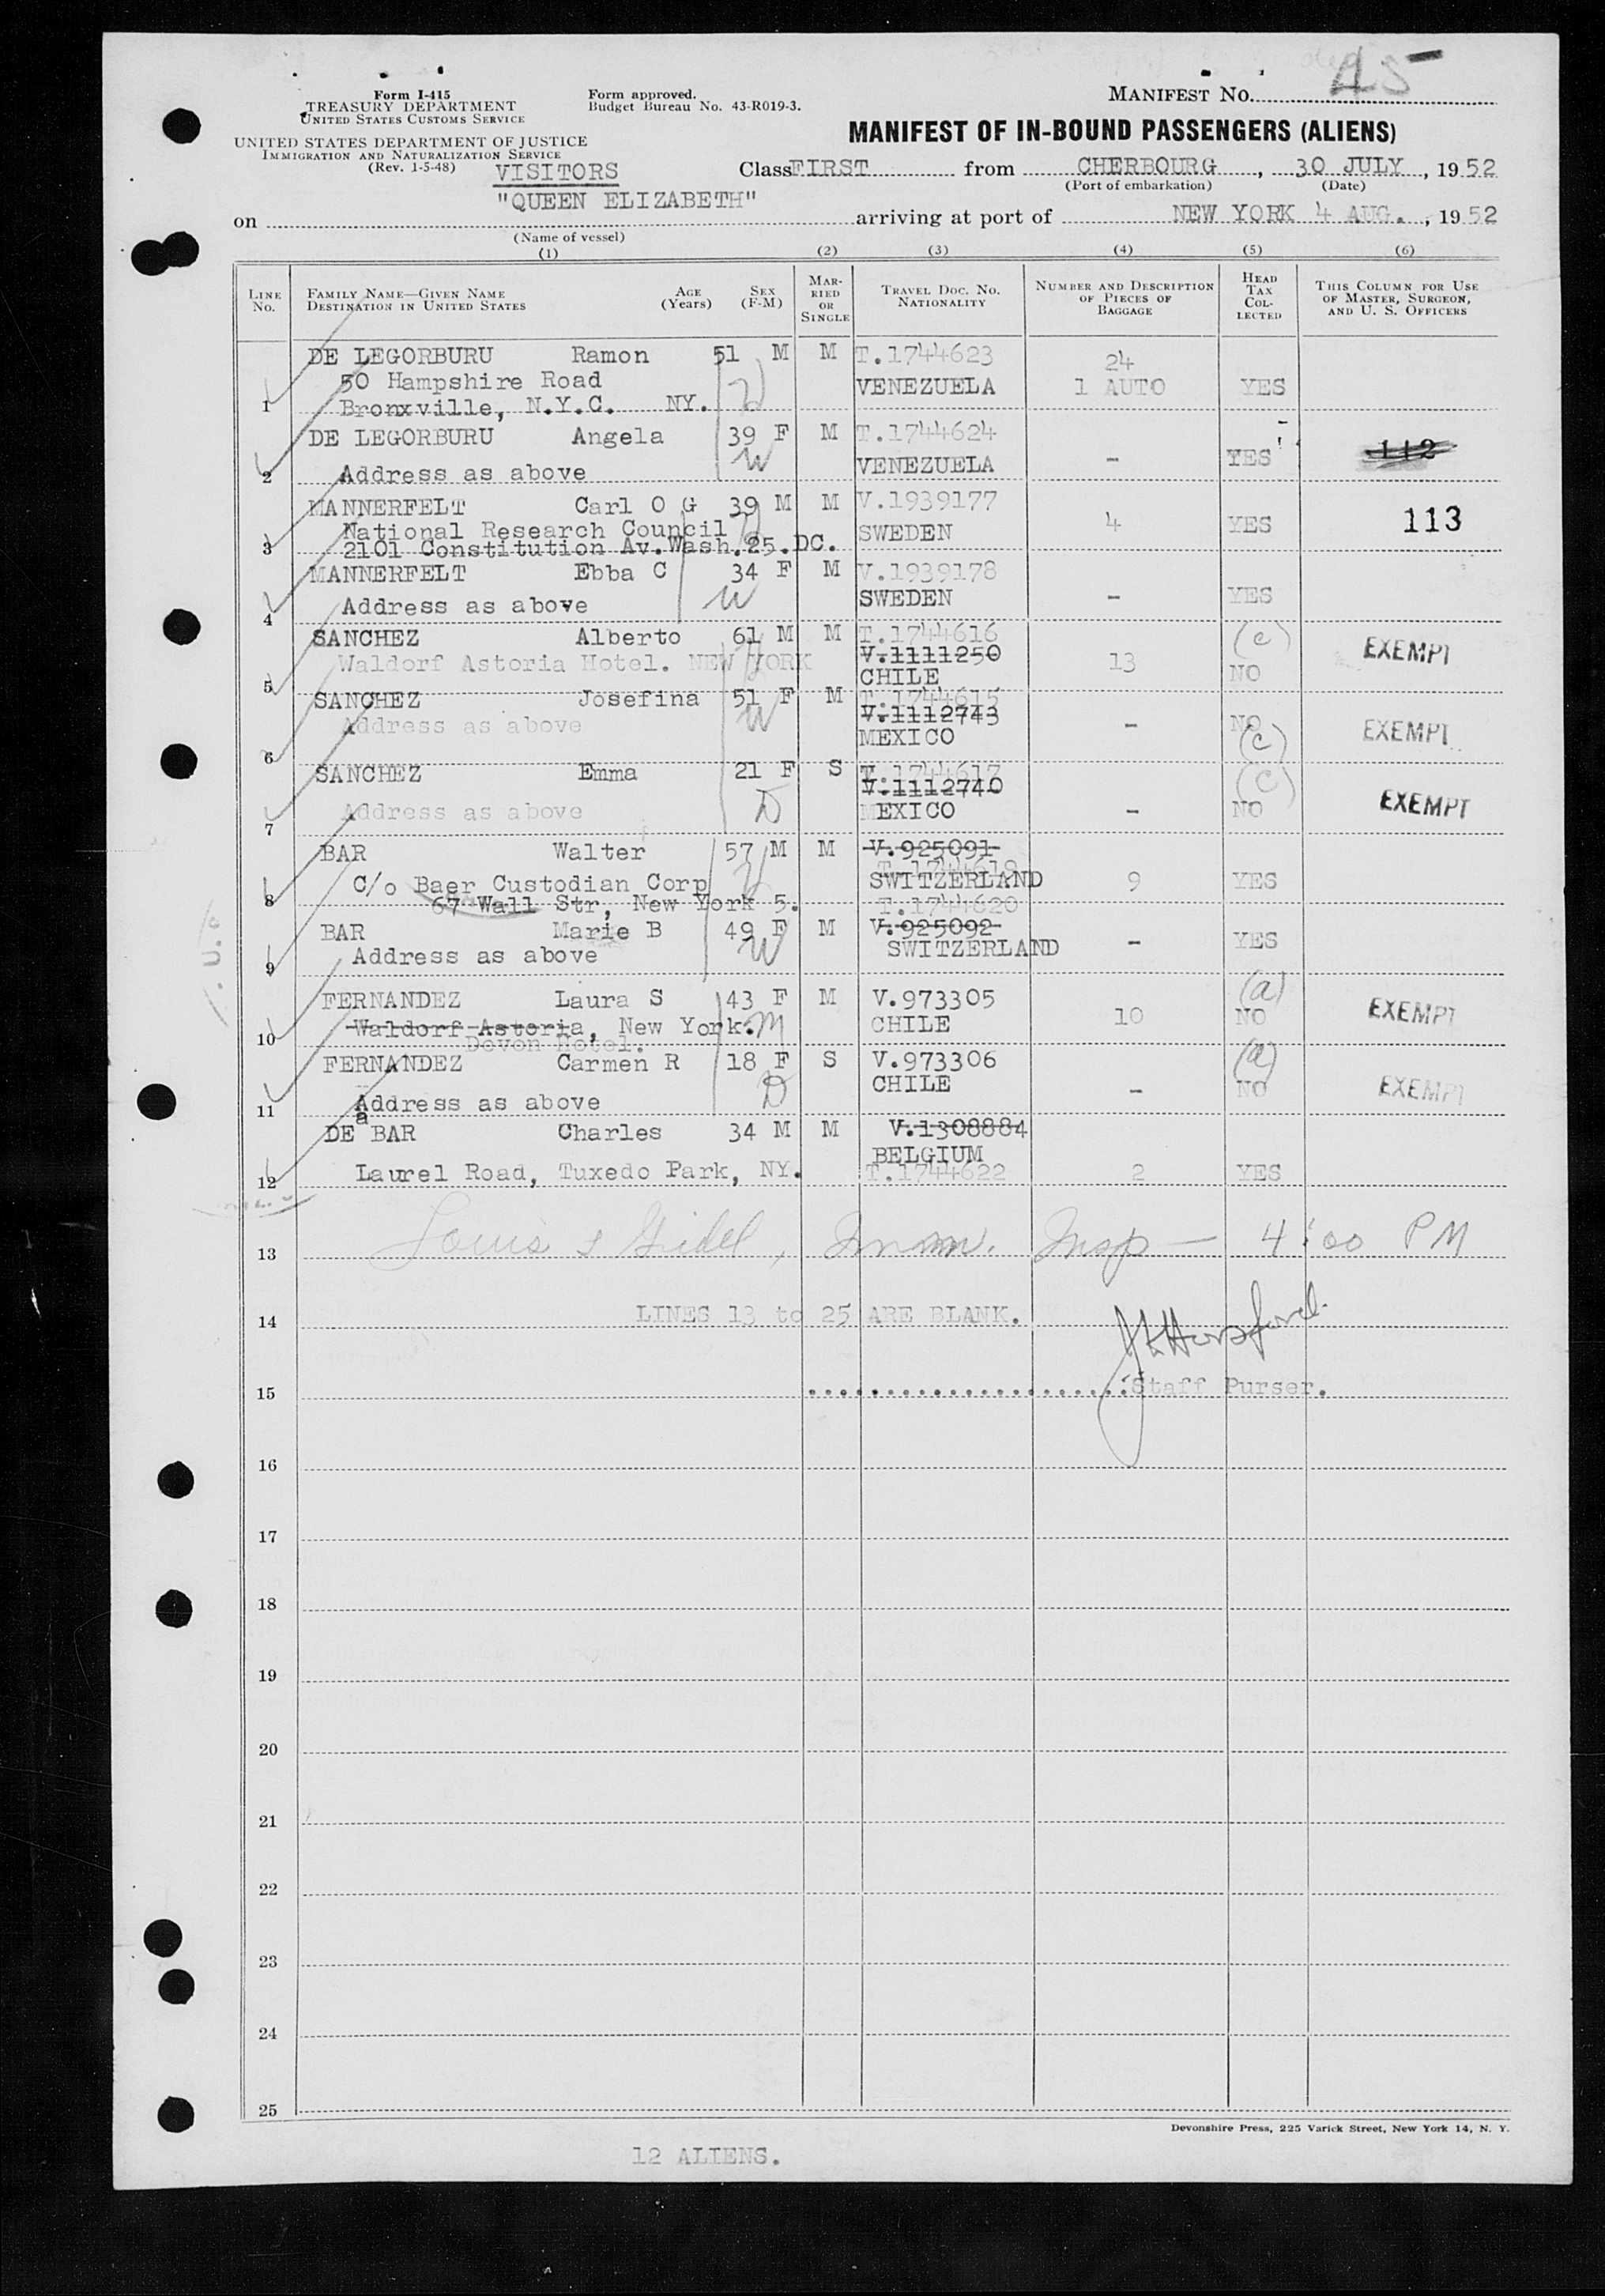 45
Form I-415
TREASURY DEPARTMENT
UNITED STATES CUSTOMS SERVICE
Form approved.
Budget Bureau No. 43-R019-3.
MANIFEST No.
UNITED STATES DEPARTMENT OF JUSTICE
IMMIGRATION AND NATURALIZATION SERVICE
(Rev. 1-5-48)
MANIFEST OF IN-BOUND PASSENGERS (ALIENS)
VISITORS
Class FIRST from CHERBOURG, 30 JULY, 1952
(Port of embarkation) (Date)
on "QUEEN ELIZABETH" arriving at port of NEW YORK 4 AUG., 1952
(Name of vessel)
(1) (2) (3) (4) (5) (6)
LINE NO.
FAMILY NAME—GIVEN NAME
DESTINATION IN UNITED STATES
AGE (Years)
SEX (F-M)
MARRIED OR SINGLE
TRAVEL DOC. NO. NATIONALITY
NUMBER AND DESCRIPTION OF PIECES OF BAGGAGE
HEAD TAX COLLECTED
THIS COLUMN FOR USE OF MASTER, SURGEON, AND U. S. OFFICERS
DE LEGORBURU Ramon 51 M M T.1744623 24
50 Hampshire Road VENEZUELA 1 AUTO YES
1 Bronxville, N.Y.C. NY.
DE LEGORBURU Angela 39 F M T.1744624
W 112
2 Address as above VENEZUELA - YES
MANNERFELT Carl O G 39 M M V.1939177
National Research Council SWEDEN 4 YES 113
3 2101 Constitution Av.Wash.25.DC.
MANNERFELT Ebba C 34 F M V.1939178
4 Address as above W SWEDEN - YES
SANCHEZ Alberto 61 M M T.1744616 (c) EXEMPT
V.1111250
5 Waldorf Astoria Hotel. NEW YORK CHILE 13 NO
SANCHEZ Josefina 51 F M T.1744615
V.1112743
6 Address as above W MEXICO - NO (c) EXEMPT
SANCHEZ Emma 21 F S T.1744617 (c)
V.1112740
7 Address as above D MEXICO - NO EXEMPT
BAR Walter 57 M M V.925091
C/o Baer Custodian Corp SWITZERLAND 9 YES
8 67 Wall Str, New York 5. T.1744620
BAR Marie B 49 F M V.925092
9 Address as above W SWITZERLAND - YES
FERNANDEZ Laura S 43 F M V.973305 (a)
10 Waldorf Astoria, New York. M CHILE 10 NO EXEMPT
Devon Hotel.
FERNANDEZ Carmen R 18 F S V.973306 (a)
CHILE
11 Address as above D - NO EXEMPT
a
DE BAR Charles 34 M M V.1308884
BELGIUM
12 Laurel Road, Tuxedo Park, NY. T.1744622 2 YES
13 Louis Immn. Insp — 4:00 PM
14 LINES 13 to 25 ARE BLANK.
15 Staff Purser.
16
17
18
19
20
21
22
23
24
25
Devonshire Press, 225 Varick Street, New York 14, N. Y.
12 ALIENS.